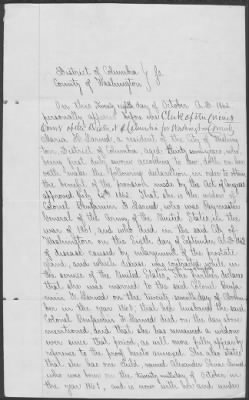 District of Columbia } Ss
County of Washington
On this Twenty ninth day of October A.D. 1862
personally appeared before me Clerk of the Circuit
Court of the District of Columbia for Washington County
Maria N. Larned, a resident of the City of Washing-
ton, District of Columbia, aged years who
being first duly sworn according to law, doth on her
oath, make the following declaration, in order to obtain
the benefit of the provision made by the Act of Congress
approved July 14th 1862. That she is the widow of
Colonel Benjamin F. Larned who was Paymaster
General of the Army of the United States in the
war of 1861 and who died in the said City of
Washington on the Sixth day of September A.D. 1862
of disease caused by enlargement of the prostate
gland, and which disease in the
service of the United States, She further declares
that she was married to the said Colonel Benja-
min F. Larned on the twenty day of
in the year that her husband the said
Colonel Benjamin F. Larned died on the day above
mentioned, and that she has remained a widow
ever since that period, as will more fully appear by
reference to the proof hereto annexed. She also states
that she has one Child named Alexander
who was born on the day of October in
the year and is now with her and under